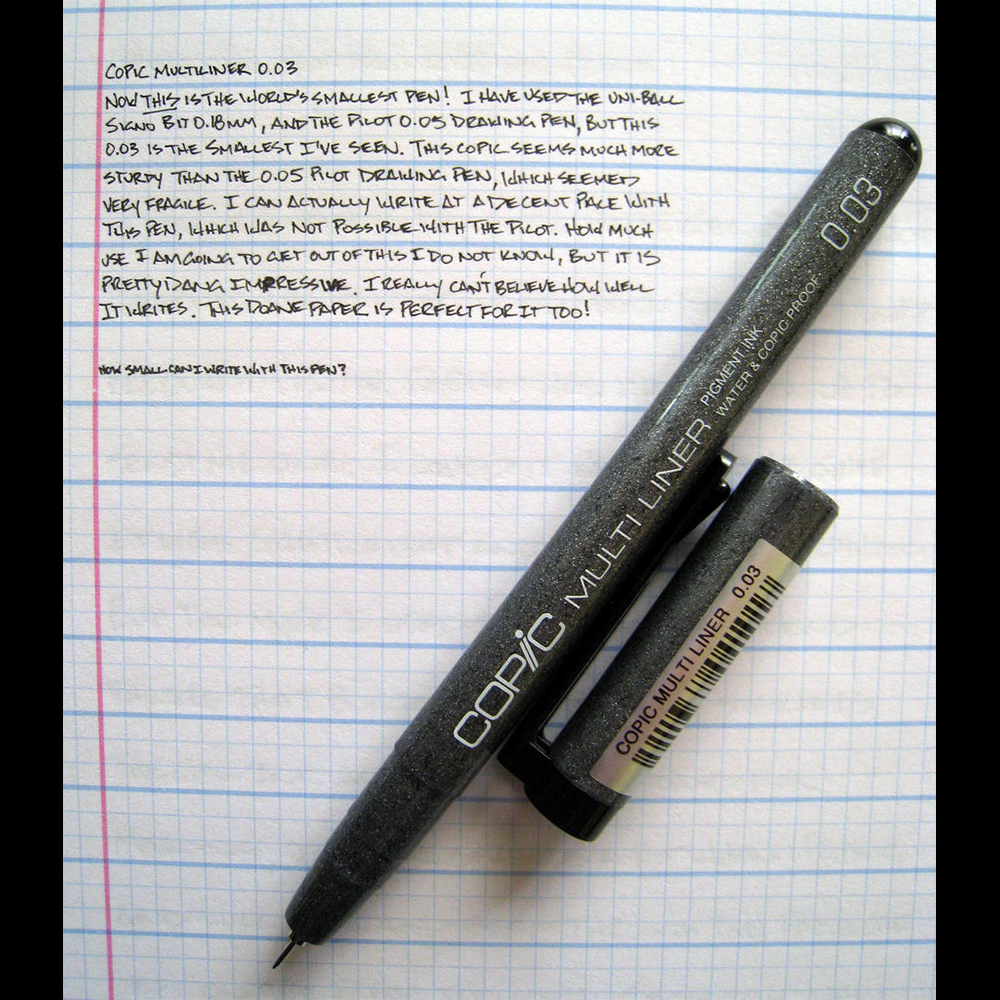 COPIC MULTILINER 0.03
NOW THIS IS THE WORLD'S SMALLEST PEN! I HAVE USED THE UNI-BALL
SIGNO BIT 0.18MM, AND THE PILOT 0.05 DRAWING PEN, BUT THIS
0.03 IS THE SMALLEST I'VE SEEN. THIS COPIC SEEMS MUCH MORE
STURDY THAN THE 0.05 PILOT DRAWING PEN, WHICH SEEMED
VERY FRAGILE. I CAN ACTUALLY WRITE AT A DECENT PACE WITH
THIS PEN, WHICH WAS NOT POSSIBLE WITH THE PILOT. HOW MUCH
USE I AM GOING TO GET OUT OF THIS I DO NOT KNOW, BUT IT IS
PRETTY DANG IMPRESSIVE. I REALLY CAN'T BELIEVE HOW WELL
IT WRITES. THIS DOANE PAPER IS PERFECT FOR IT TOO!
HOW SMALL CAN I WRITE WITH THIS PEN?
COPIC MULTI LINER PIGMENT INK
WATER & COPIC PROOF
0.03
COPIC MULTI LINER 0.03